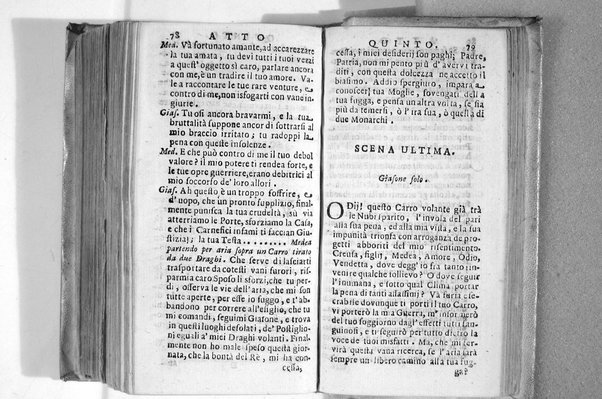 78 ATTO
Med. Và fortunato amante, ad accarezzare
la tua amata, tu devi tutti i tuoi vezzi
a quest' oggetto sì caro, parlare ancora
con me, è un tradire il tuo amore. Va le
a raccontare le tue rare venture, e
contro di me, non isfogarti con vane in-
giurie.
Gias. Tu osi ancora bravarmi, e la tua
bruttalità suppone ancor di sottrarsi al
mio braccio irritato; tu radoppi la
pena con queste insolenze.
Med. E che può contro di me il tuo debol
valore? il mio potere ti rendea forte, e
le tue opre guerriere, erano debitrici al
mio soccorso de' loro allori.
Gias. Ah questo è un troppo soffrire, e
d' uopo, che un pronto supplizio, final-
mente punisca la tua crudeltà, su via
atterriamo le Porte, sforziamo la Casa,
e che i Carnefici infami ti faccian Giu-
stizia; la tua Testa ........ Medea
partendo per aria sopra un Carro tirato
da due Draghi. Che serve di lasciarti
trasportare da cotesti vani furori, ris-
parmia caro Sposo li sforzi, che tu per-
di, osserva le vie dell' aria, che mi son
tutte aperte, per esse io fuggo, e t' ab-
bandono per correre all' esiglio, che tu
mi comandi, seguimi Giasone, e trova
in questi luoghi desolati, de' Postiglio-
ni eguali a' miei Draghi volanti. Final-
mente non ho male speso questa gior-
nata, che la bontà del Rè, mi ha con-
cessa,
QUINTO. 79
cessa, i miei desiderj son paghi; Padre,
Patria, non mi pento più d' avervi tra-
diti, con questa dolcezza ne accetto il
biasimo. Addio spergiuro, impara a
conoscer; tua Moglie, sovengati della
tua fugga, e pensa un altra volta, se sia
più da temersi, ò l' ira sua, ò quella di
due Monarchi.
SCENA ULTIMA.
Giasone solo.
O Dij! questo Carro volante già trà
le Nubi sparito, l' invola del pari
alla sua pena, ed alla mia vista, e la sua
impunità trionfa con arroganza de pro-
getti abboriti del mio risentimento.
Creusa, figlj, Medea, Amore, Odio,
Vendetta, dove degg' io frà tanto rin-
venire qualche sollievo? O dove seguir
l' inumana, e sotto qual Clima portar
la pena di tanti assassinj? Và furia ese-
crabile dovunque ti porti il tuo Carro,
vi porterò la mia Guerra, m' infor-
del tuo soggiorno dagl' effetti tutti san-
guinosi, e ti seguirò per tutto dietro la
voce de tuoi misfatti. Ma, che mi ser-
virà questa vana ricerca, se l' aria sarà
sempre un libero camino alla tua fug-
ga?